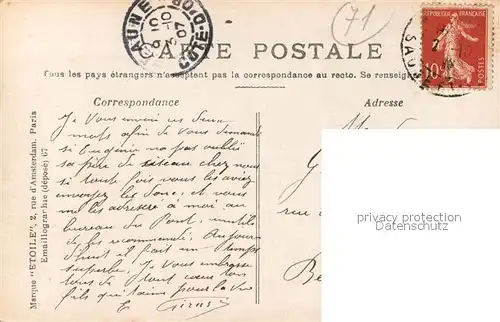 BEAUNE
CÔTE-D'OR
3-10
07
71
RÉPUBLIQUE FRANÇAISE
10
POSTES
SAU
CARTE POSTALE
Tous les pays étrangers n'acceptent pas la correspondance au recto. Se renseign
Correspondance
Adresse
Marque "ETOILE", 2, rue d'Amsterdam, Paris
Emaillographie (déposé) 67
Je Vous envoi ces deux
mots afin de Vous demande
si Eugénie na pas oublié
sa père de siteau chez nous
si toute fois vous les aviez
envoyez les donc, et vous
me les adreserè à moi au
bureau du Pont, inutile
de les recommendé. Aujour-
d'huit il fait un temps
superbe. Je Vous embrasse
tous de tout cœur ton
fils qui t'aime pour la vie
E
rue
Be
privacy protection
Datenschutz